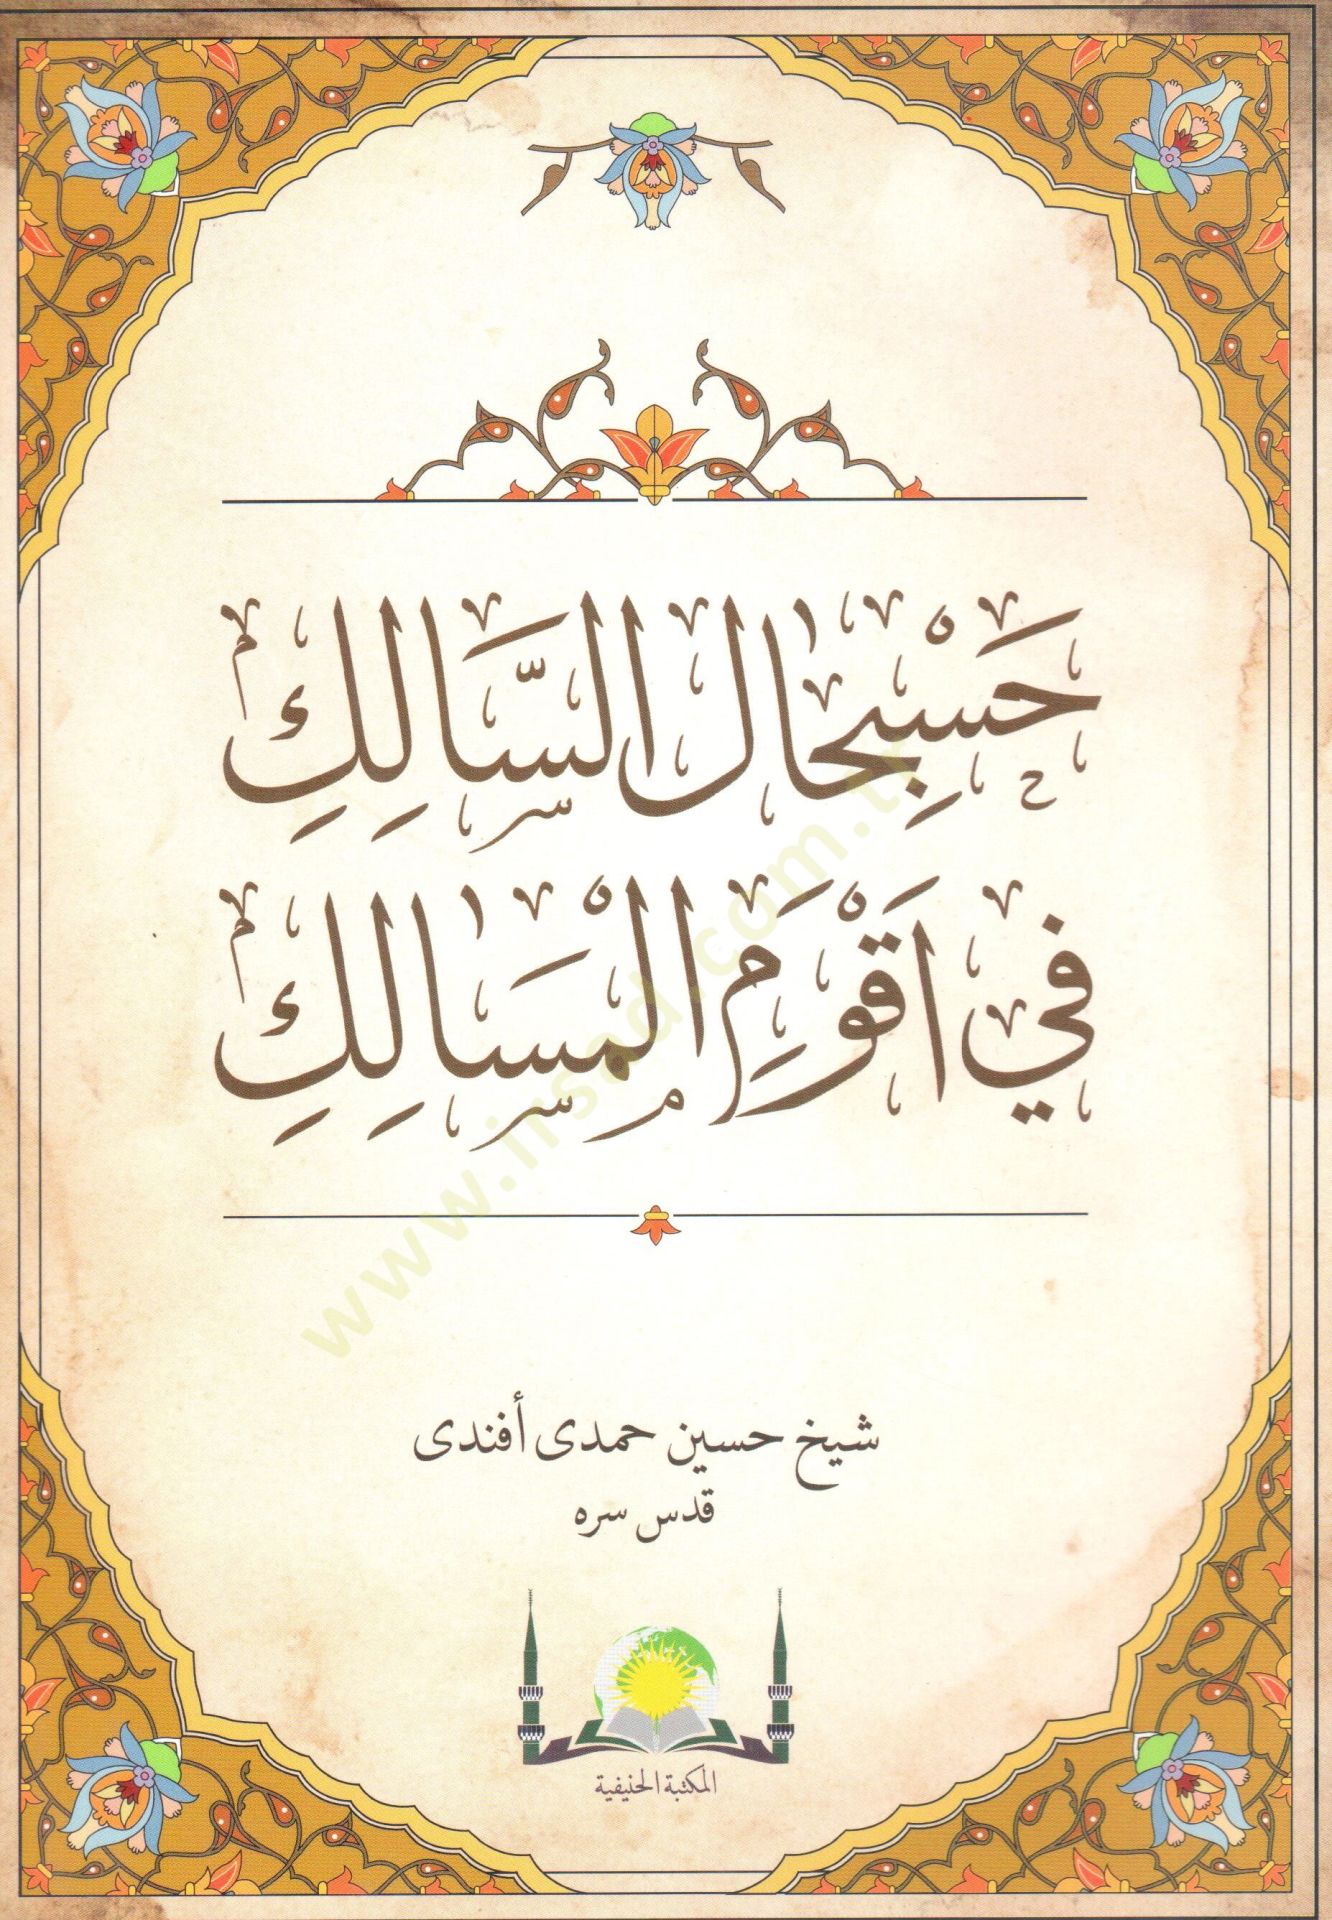 حَسْبِحَالُ السَّالِكِ
فِي اَقْوَمِ الْمَسَالِكِ
شيخ حسين حمدى أفندى
قدس سره
المكتبة الحنيفية
www.irsad.com.tr